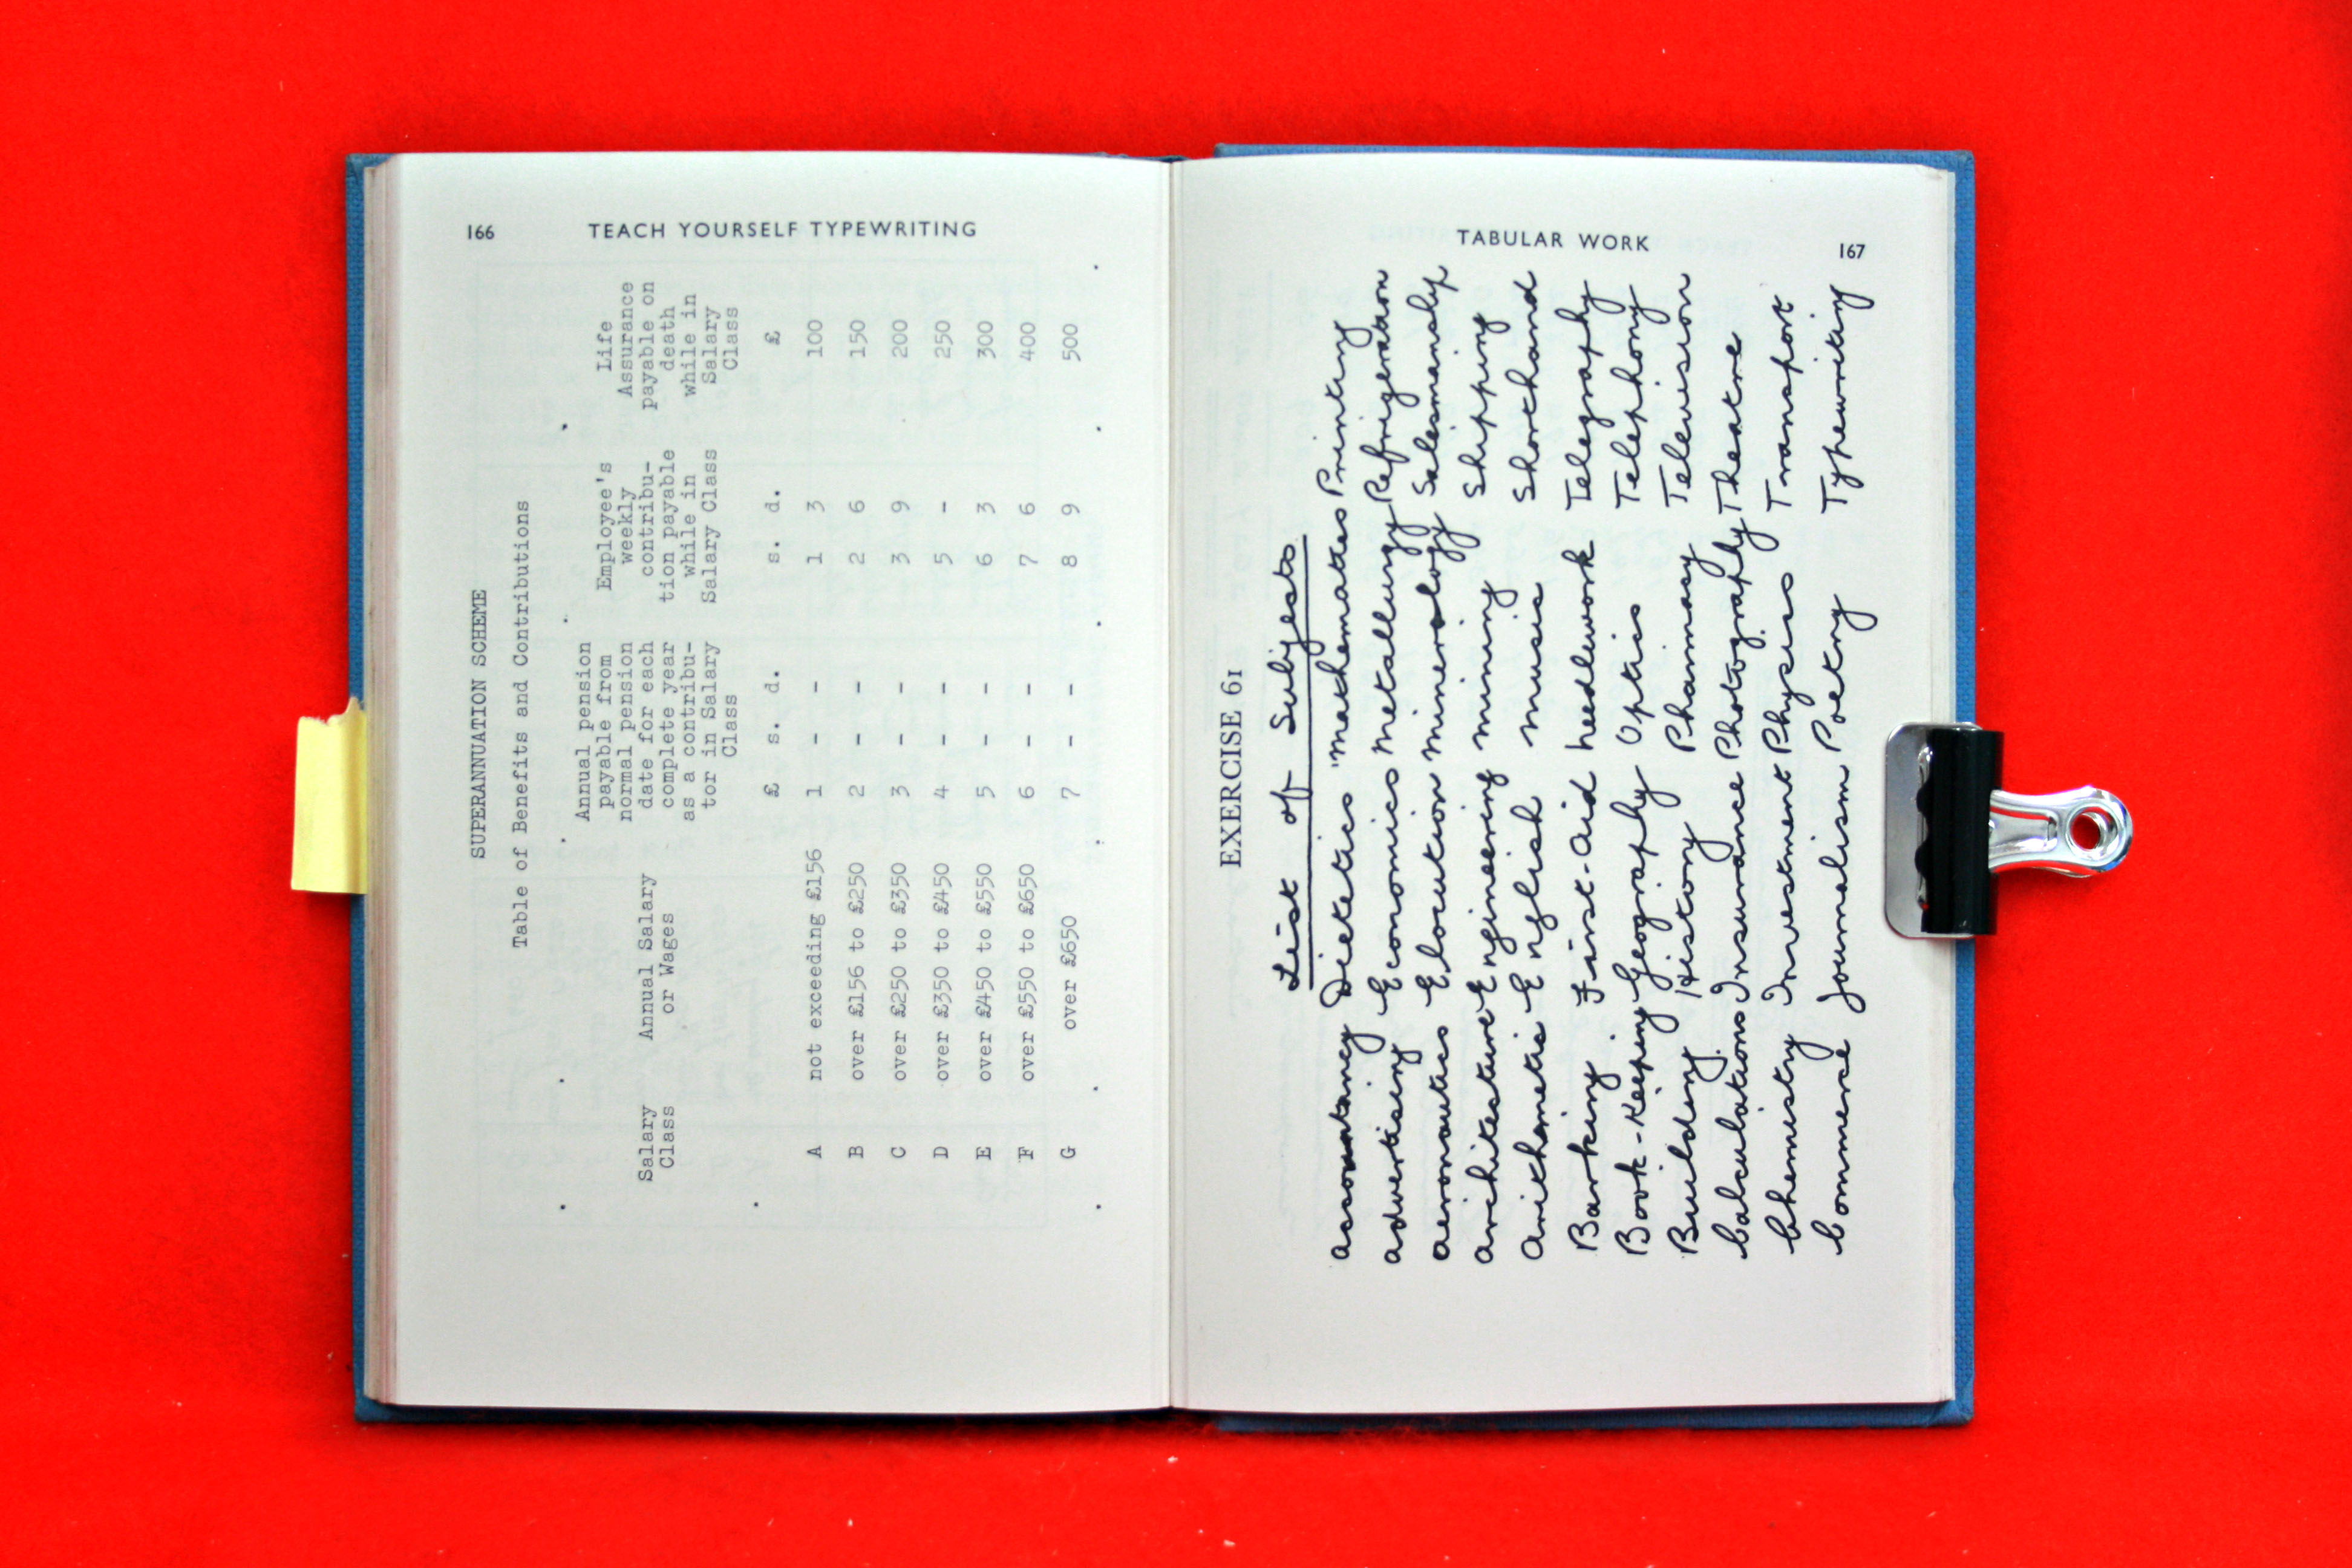 166 TEACH YOURSELF TYPEWRITING
SUPERANNUATION SCHEME
Table of Benefits and Contributions
Salary Class
Annual Salary or Wages
Annual pension payable from normal pension date for each complete year as a contribu- tor in Salary Class
Employee's weekly contribu- tion payable while in Salary Class
Life Assurance payable on death while in Salary Class
£ s. d. s. d. £
A not exceeding £156 1 - - 1 3 100
B over £156 to £250 2 - - 2 6 150
C over £250 to £350 3 - - 3 9 200
D over £350 to £450 4 - - 5 - 250
E over £450 to £550 5 - - 6 3 300
F over £550 to £650 6 - - 7 6 400
G over £650 7 - - 8 9 500
TABULAR WORK 167
EXERCISE 61
List of Subjects
Accountancy Dietetics Mathematics Printing
Advertising Economics Metallurgy Refrigeration
Aeronautics Elocution Mineralogy Salesmanship
Architecture Engineering Mining Shipping
Arithmetic English Music Shorthand
Banking First-Aid Needlework Telegraphy
Book-Keeping Geography Optics Telephony
Building History Pharmacy Television
Calculations Insurance Photography Theatre
Chemistry Investment Physics Transport
Commerce Journalism Poetry Typewriting